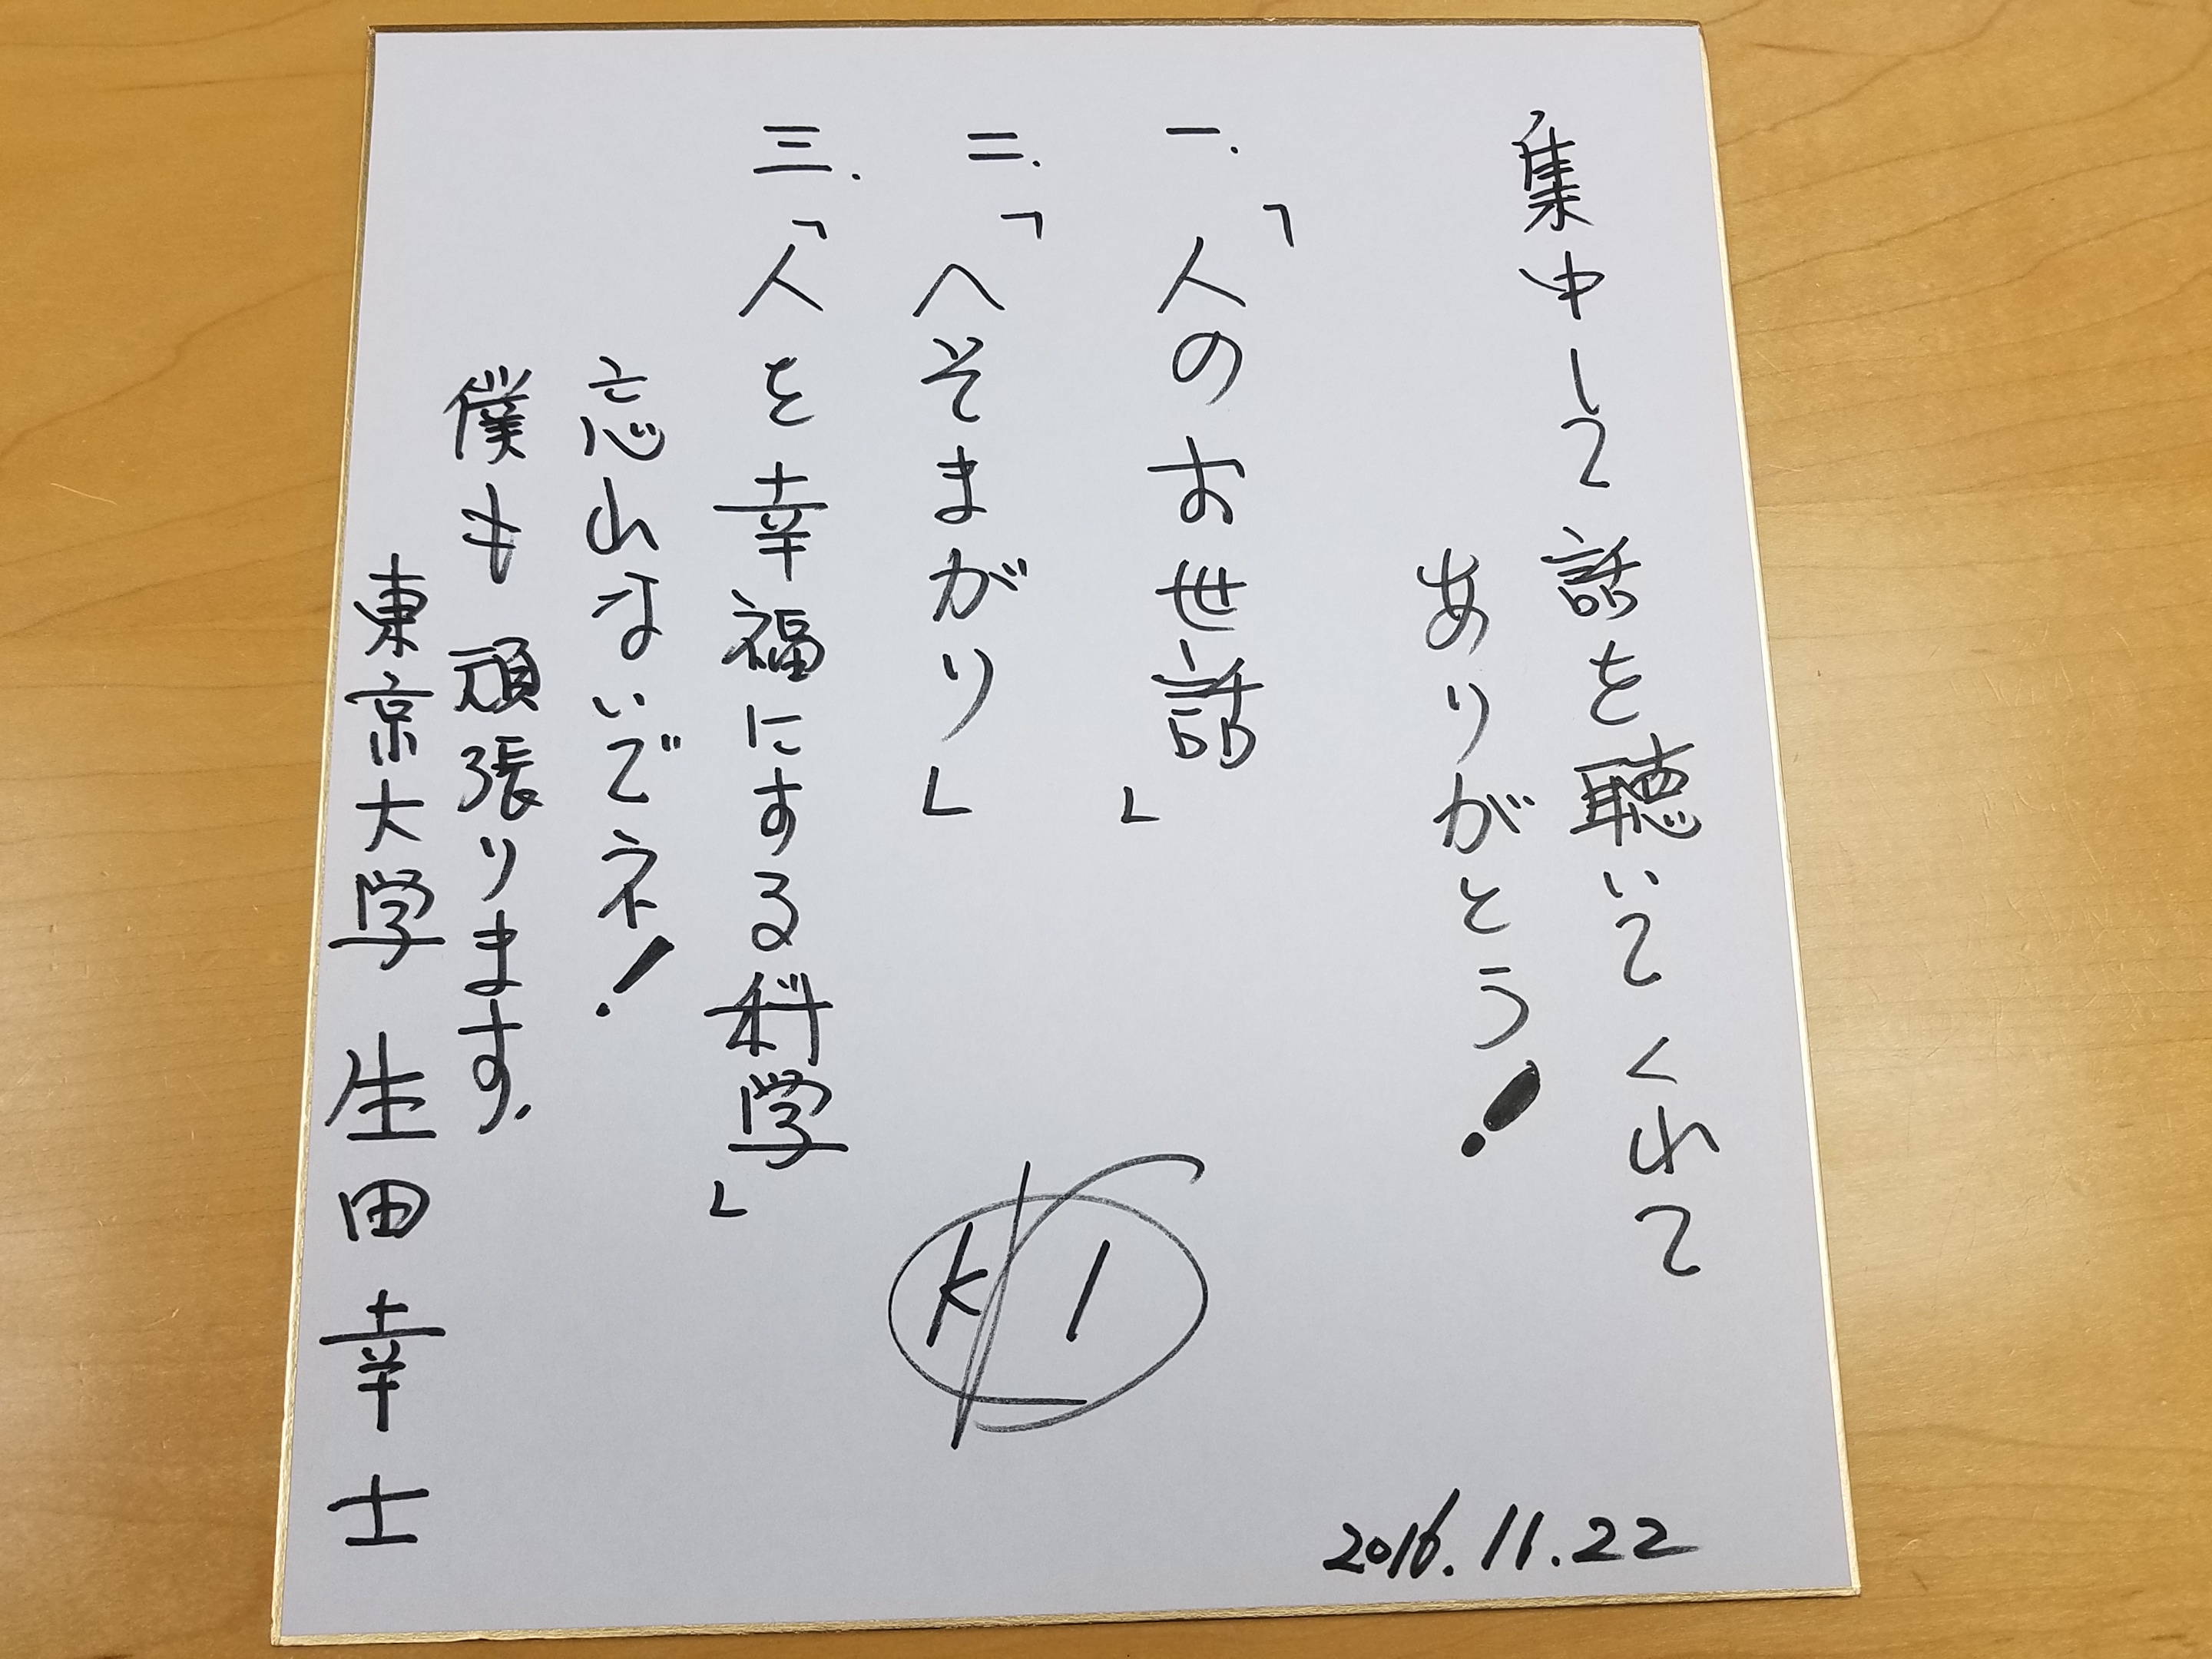 集中して話を聴いてくれて
ありがとう!
一.「人のお世話」
二.「へそまがり」
三.「人を幸福にする科学」
忘れないでネ!
僕も頑張ります.
東京大学 生田幸士
KI
2016.11.22